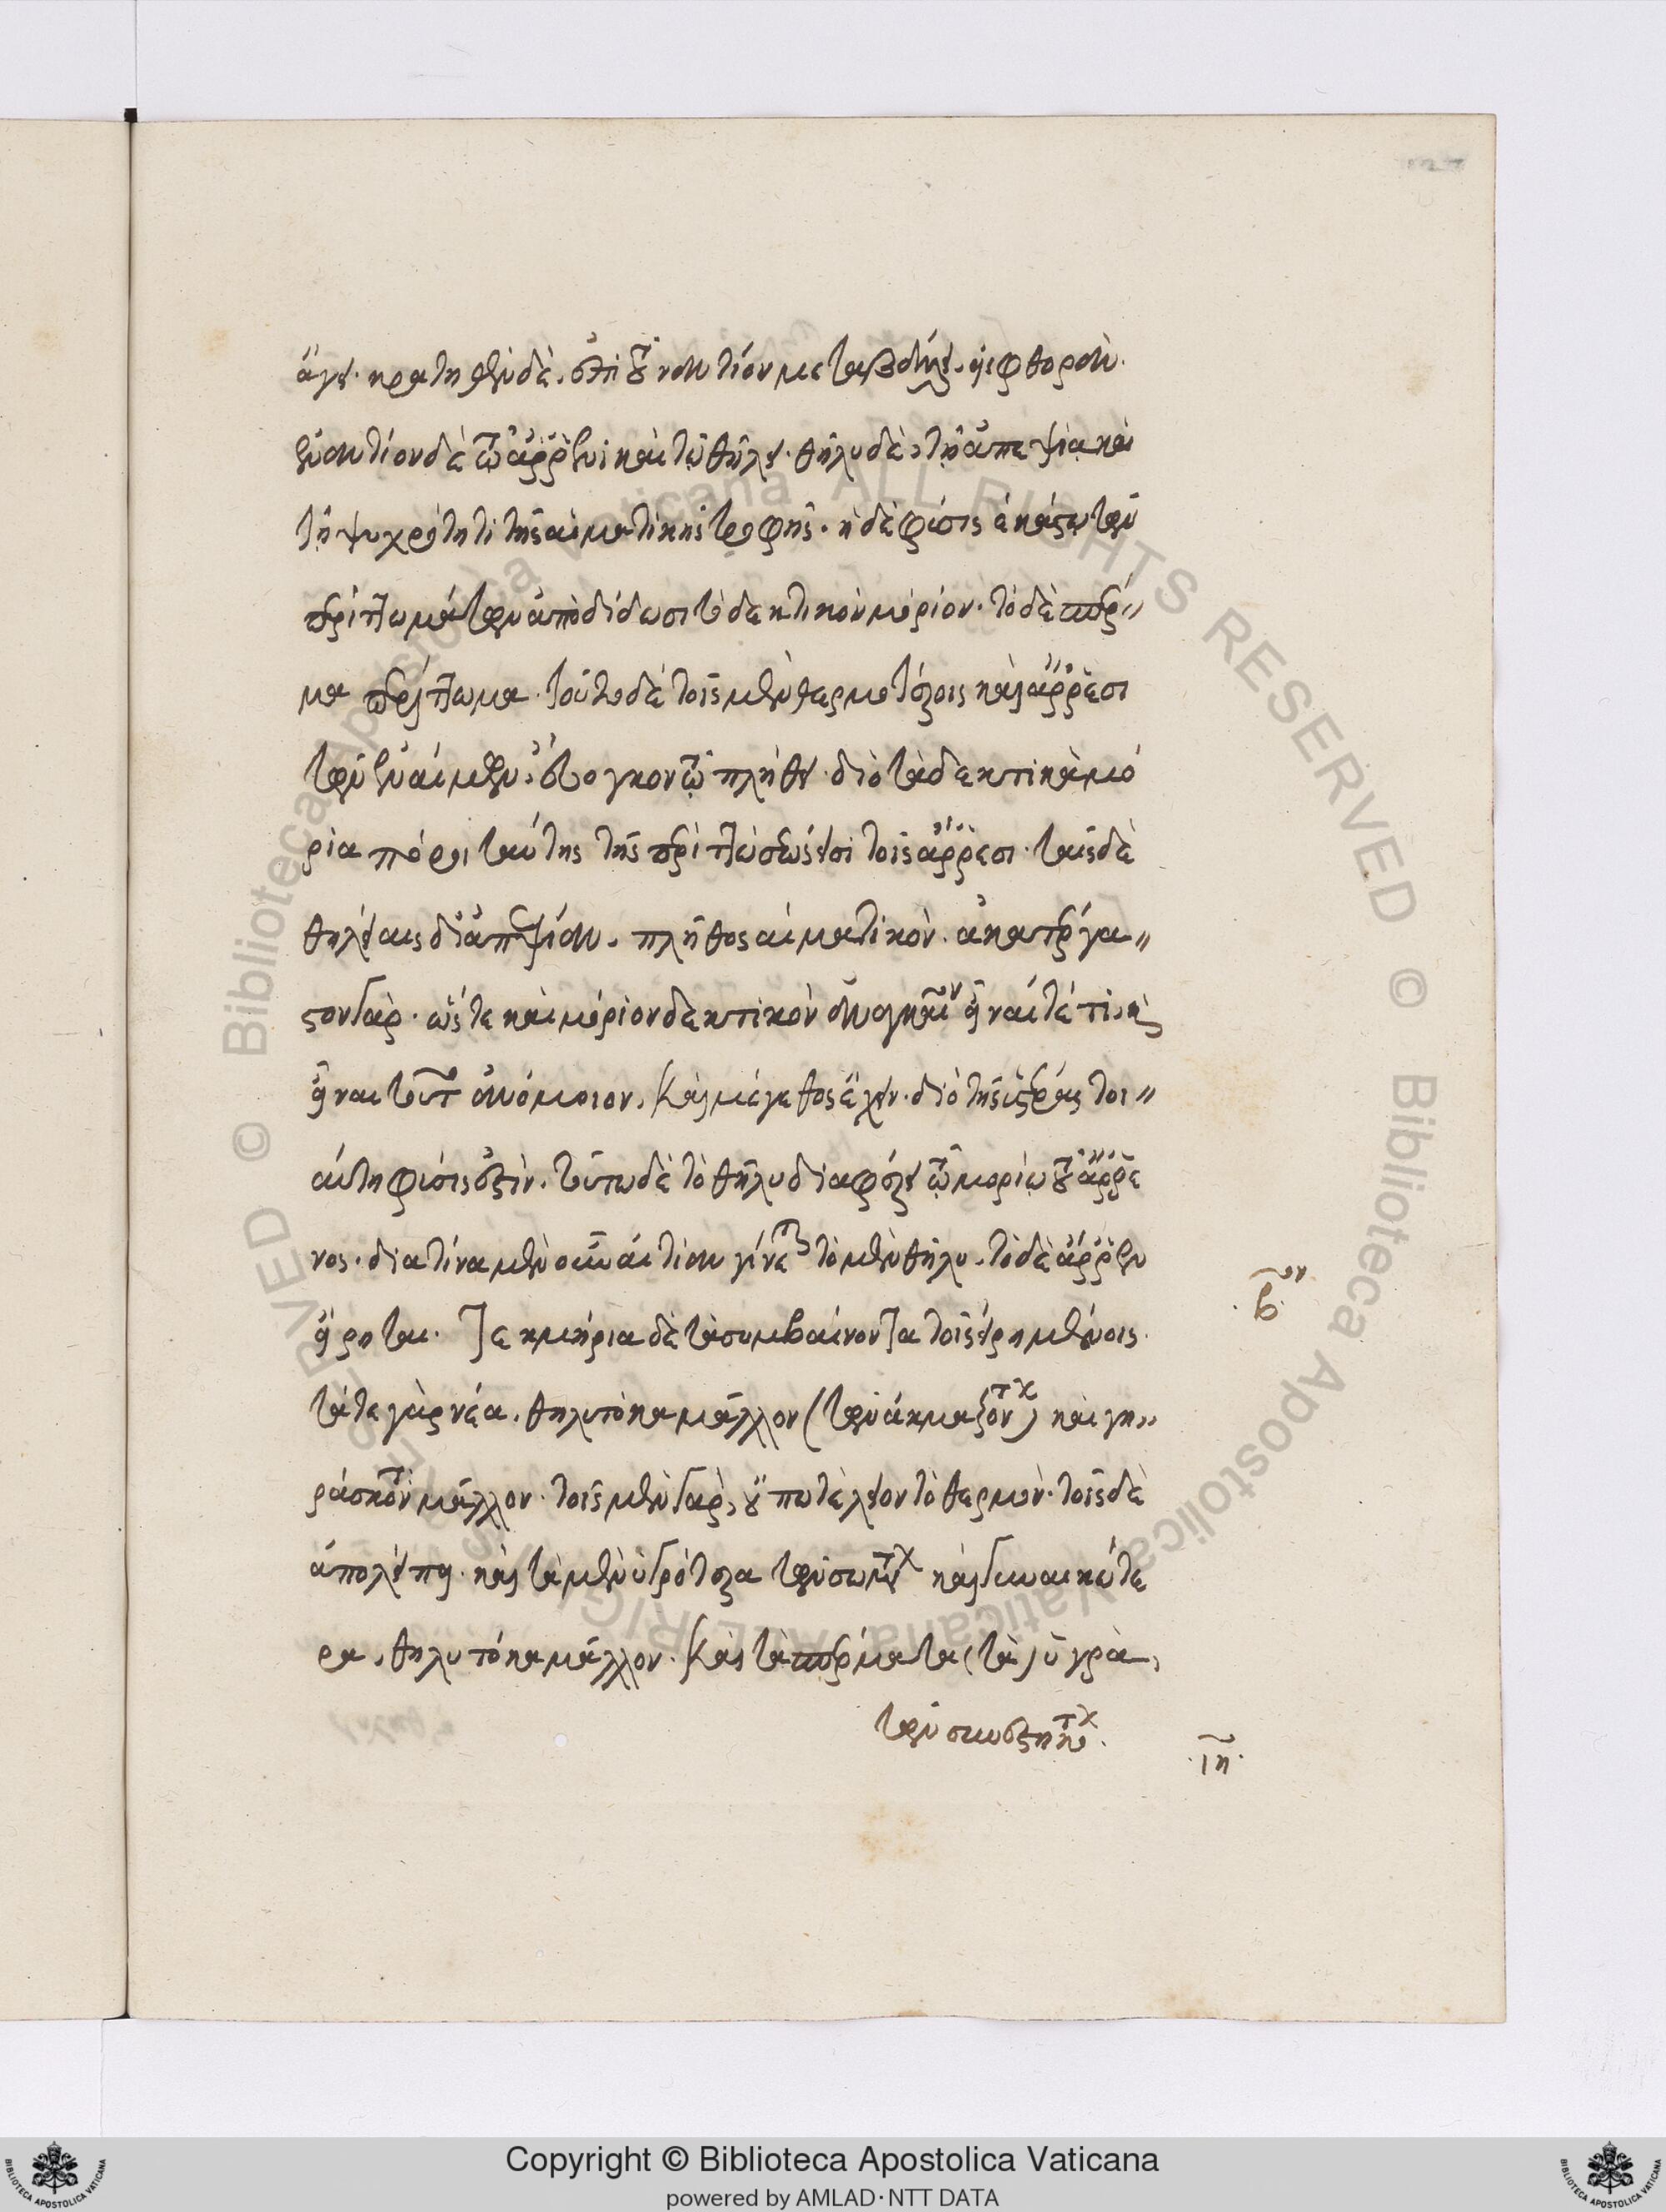 ἄγει. κρατηθὲν δὲ, εἰς τοὐναντίον μεταβάλλει, ἢ εἰς φθοράν.
ἐναντίον δὲ τῷ ἄῤῥενι καὶ τῷ θήλει. θῆλυ δὲ, τῇ ἀπεψίᾳ καὶ
τῇ ψυχρότητι τῆς αἱματικῆς τροφῆς. ἡ δὲ φύσις ἑκάστῳ τῶν
περιττωμάτων ἀποδίδωσι τὸ δεκτικὸν μόριον. τὸ δὲ σπέρ〃
μα περίττωμα. τοῦτο δὲ τοῖς μὲν θερμοτέροις καὶ ἄῤῥεσι
τῶν ἐναίμων, εὔογκον τῷ πλήθει. διὸ τὰ δεκτικὰ μό
ρια πόροι ταύτης τῆς περιττώσεώς εἰσι τοῖς ἄῤῥεσι. ταῖς δὲ
θηλείαις δι' ἀπεψίαν, πλῆθος αἱματικόν. ἀκατέργα〃
στον γάρ. ὥστε καὶ μόριον δεκτικὸν ἀναγκαῖον εἶναί τέ τι, καὶ
εἶναι τοῦτ' ἀνόμοιον, καὶ μέγεθος ἔχειν. διὸ τῆς ὑστέρας τοι〃
αύτη φύσις ἐστίν. τούτῳ δὲ τὸ θῆλυ διαφέρει τῷ μορίῳ τοῦ ἄῤῥε
νος. διὰ τίνα μὲν οὖν αἰτίαν γίνεται τὸ μὲν θῆλυ, τὸ δὲ ἄῤῥεν
εἴρηται. Τεκμήρια δὲ τὰ συμβαίνοντα τοῖς εἰρημένοις.
.β.ον
τά τε γὰρ νέα, θηλυτόκα μᾶλλον (τῶν ἀκμαζόντων) καὶ γη〃
ράσκοντα μᾶλλον. τοῖς μὲν γὰρ, οὔπω τέλειον τὸ θερμόν. τοῖς δὲ
ἀπολείπει. καὶ τὰ μὲν ὑγρότερα τῶν σωμάτων καὶ γυναικώτε
ρα, θηλυτόκα μᾶλλον. καὶ τὰ σπέρματα (τὰ) ὑγρὰ,
τῶν συνεστηκότων.
.ιη.